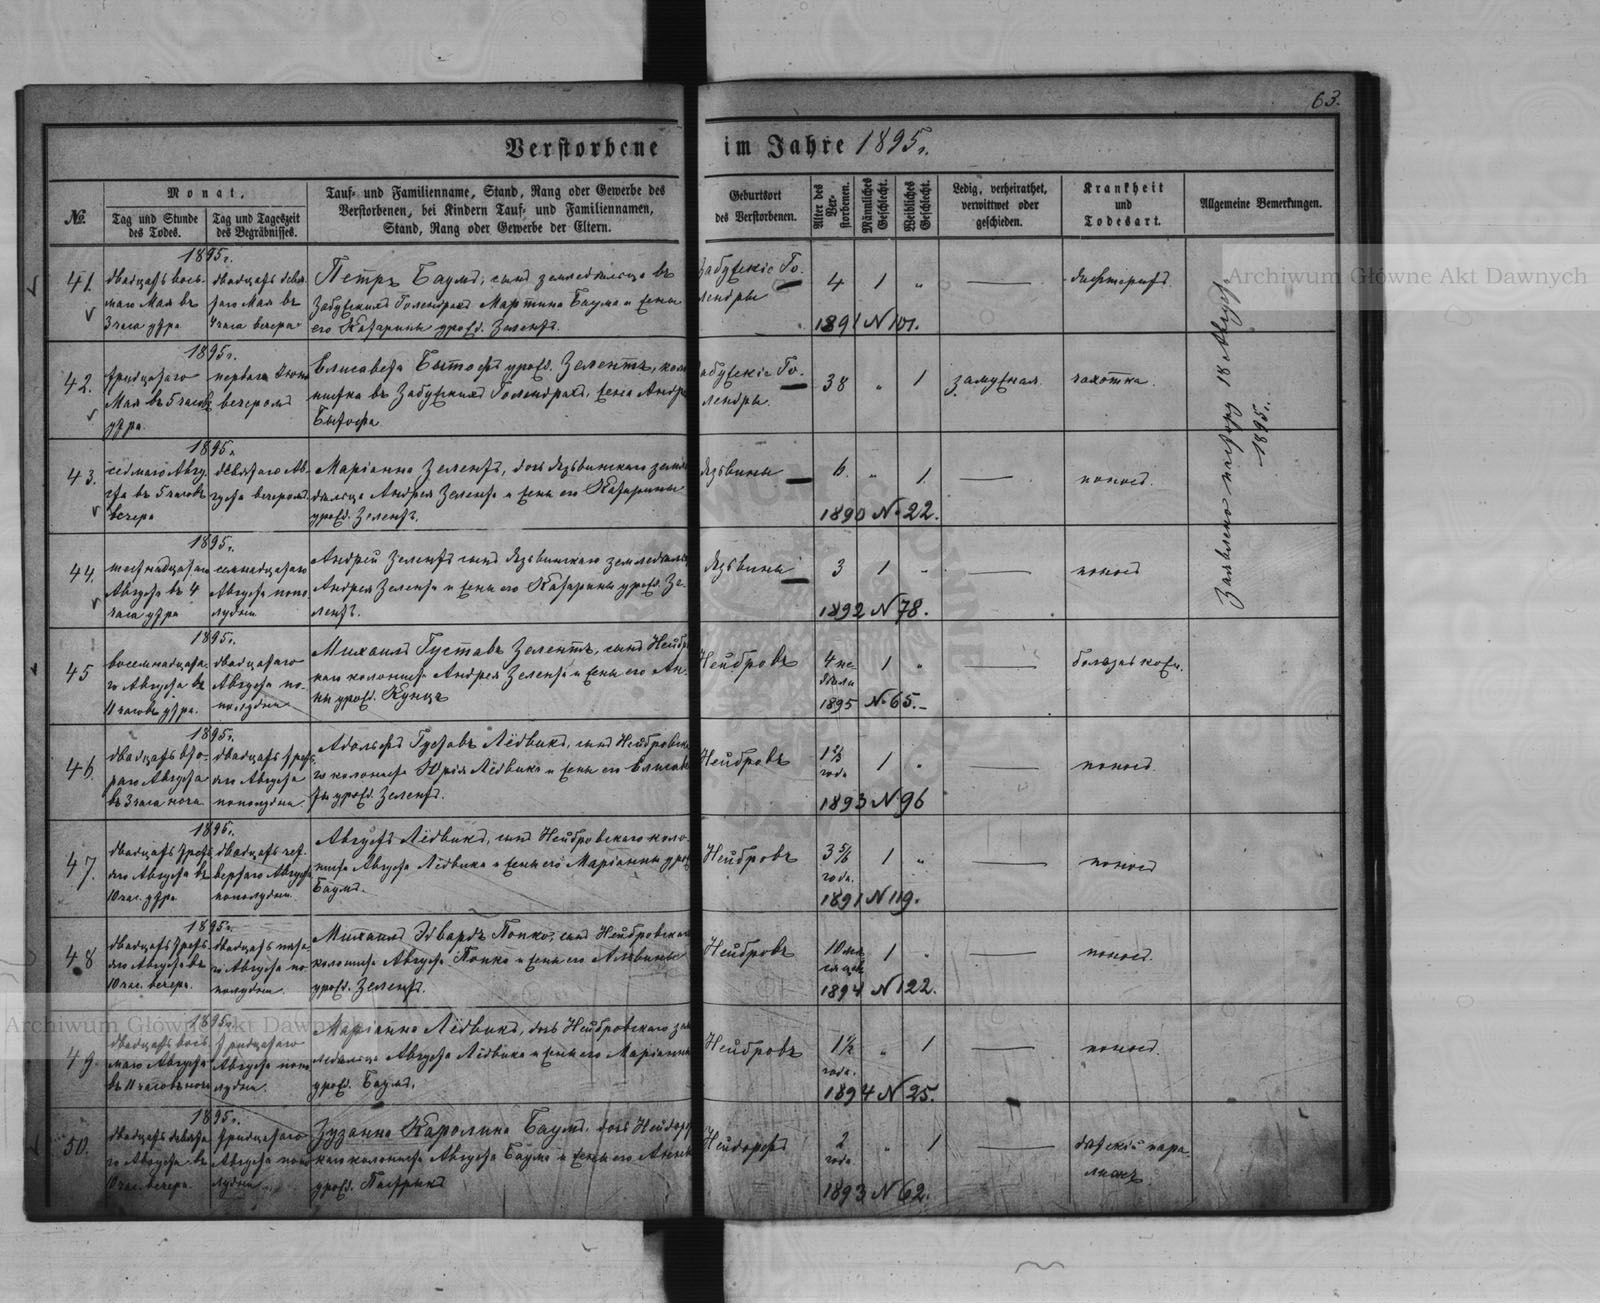 63.
Verstorbene im Jahre 1895 г.
№.
Monat.
Tag und Stunde des Todes.
Tag und Tageszeit des Begräbnisses.
Tauf- und Familienname, Stand, Rang oder Gewerbe des
Verstorbenen, bei Kindern Tauf- und Familiennamen,
Stand, Rang oder Gewerbe der Eltern.
Geburtsort
des Verstorbenen.
Alter des Ver-
storbenen.
Männliches
Geschlecht.
Weibliches
Geschlecht.
Ledig, verheirathet,
verwittwet oder
geschieden.
Krankheit
und
Todesart.
Allgemeine Bemerkungen.
1895 г.
41.
двадцать вось-
маго Мая въ
3 часа утра
двадцать девя-
таго Мая въ
4 часа вечера
Петръ Баумъ, сынъ земледѣльца въ
Забужскихъ Голендрахъ Мартина Баума и жены
его Катарины урожд. Зелентъ.
Забужскіе Го-
лендры
4 1 „
1891 № 101.
дифтеритъ
1895 г.
42.
тридцатаго
Мая въ 5 часовъ
утра
перваго Іюня
вечеромъ
Елисавета Бытофъ урожд. Зелентъ, коло-
нистка въ Забужскихъ Голендрахъ, жена Андрея
Бытофа
Забужскіе Го-
лендры.
38 „ 1
замужняя
чахотка.
1895 г.
43.
седмаго Авгу-
ста въ 5 часовъ
вечера
девятаго Ав-
густа вечеромъ
Маріанна Зелентъ, дочь Язвинскаго земле-
дѣльца Андрея Зелента и жены его Катарины
урожд. Зелентъ.
Язвины
6. „ 1.
1890 № 22.
поносъ.
1895 г.
44.
шестнадцатаго
Августа въ 4
часа утра
семнадцатаго
Августа попо-
лудни
Андрей Зелентъ сынъ Язвинскаго земледѣльца
Андрея Зелента и жены его Катарины урожд. Зе-
лентъ.
Язвины
3 1 „
1892 № 78.
поносъ
1895 г.
45
восемнадцата-
го Августа въ
11 часовъ утра.
двадцатаго
Августа по-
полудни
Михаилъ Густавъ Зелентъ, сынъ Нейбров-
скаго колониста Андрея Зелента и жены его Ан-
ны урожд. Кунцъ
Нейбровъ
4 не-
дѣли
1 „
1895 № 65.
1895 г.
46.
двадцать вто-
раго Августа
въ 3 часа ночи
двадцать треть-
яго Августа
пополудни
Адольфъ Густавъ Лёдвихъ, сынъ Нейбровска-
го колониста Юрія Лёдвиха и жены его Елисаве-
ты урожд. Зелентъ.
Нейбровъ
года
1 „
1893 № 96
поносъ.
1895 г.
47.
двадцать треть-
яго Августа въ
10 час. утра
двадцать чет-
вертаго Августа
пополудни.
Августъ Лёдвихъ, сынъ Нейбровскаго коло-
ниста Августа Лёдвиха и жены его Маріанны урожд.
Баумъ.
Нейбровъ
3 5/6
года.
1 „
1891 № 119.
поносъ
1895 г.
48
двадцать треть-
яго Августа въ
10 час. вечера.
двадцать пята-
го Августа по-
полудни.
Михаилъ Эдвардъ Попко, сынъ Нейбровскаго
колониста Августа Попко и жены его Альвины
урожд. Зелентъ.
Нейбровъ
10 мѣ-
сяцевъ
1 „
1894 № 122.
поносъ.
1895 г.
49.
двадцать вось-
маго Августа
въ 11 часовъ ночи
тридцатаго
Августа попо-
лудни.
Маріанна Лёдвихъ, дочь Нейбровскаго зем-
ледѣльца Августа Лёдвиха и жены его Маріанны
урожд. Баумъ.
Нейбровъ
1 1/2
года.
„ 1
1894 № 25.
поносъ.
1895 г.
50.
двадцать девята-
го Августа въ
10 час. вечера.
тридцатаго
Августа попо-
лудни
Зузанна Каролина Баумъ, дочь Нейдорф-
скаго колониста Августа Баума и жены его Анны
урожд.
Нейдорфъ
2
года
„ 1
1893 № 62.
дѣтскій пара-
личъ.
Заявлено пастору 18 Августа
1895 г.
Archiwum Główne Akt Dawnych
Archiwum Główne Akt Dawnych